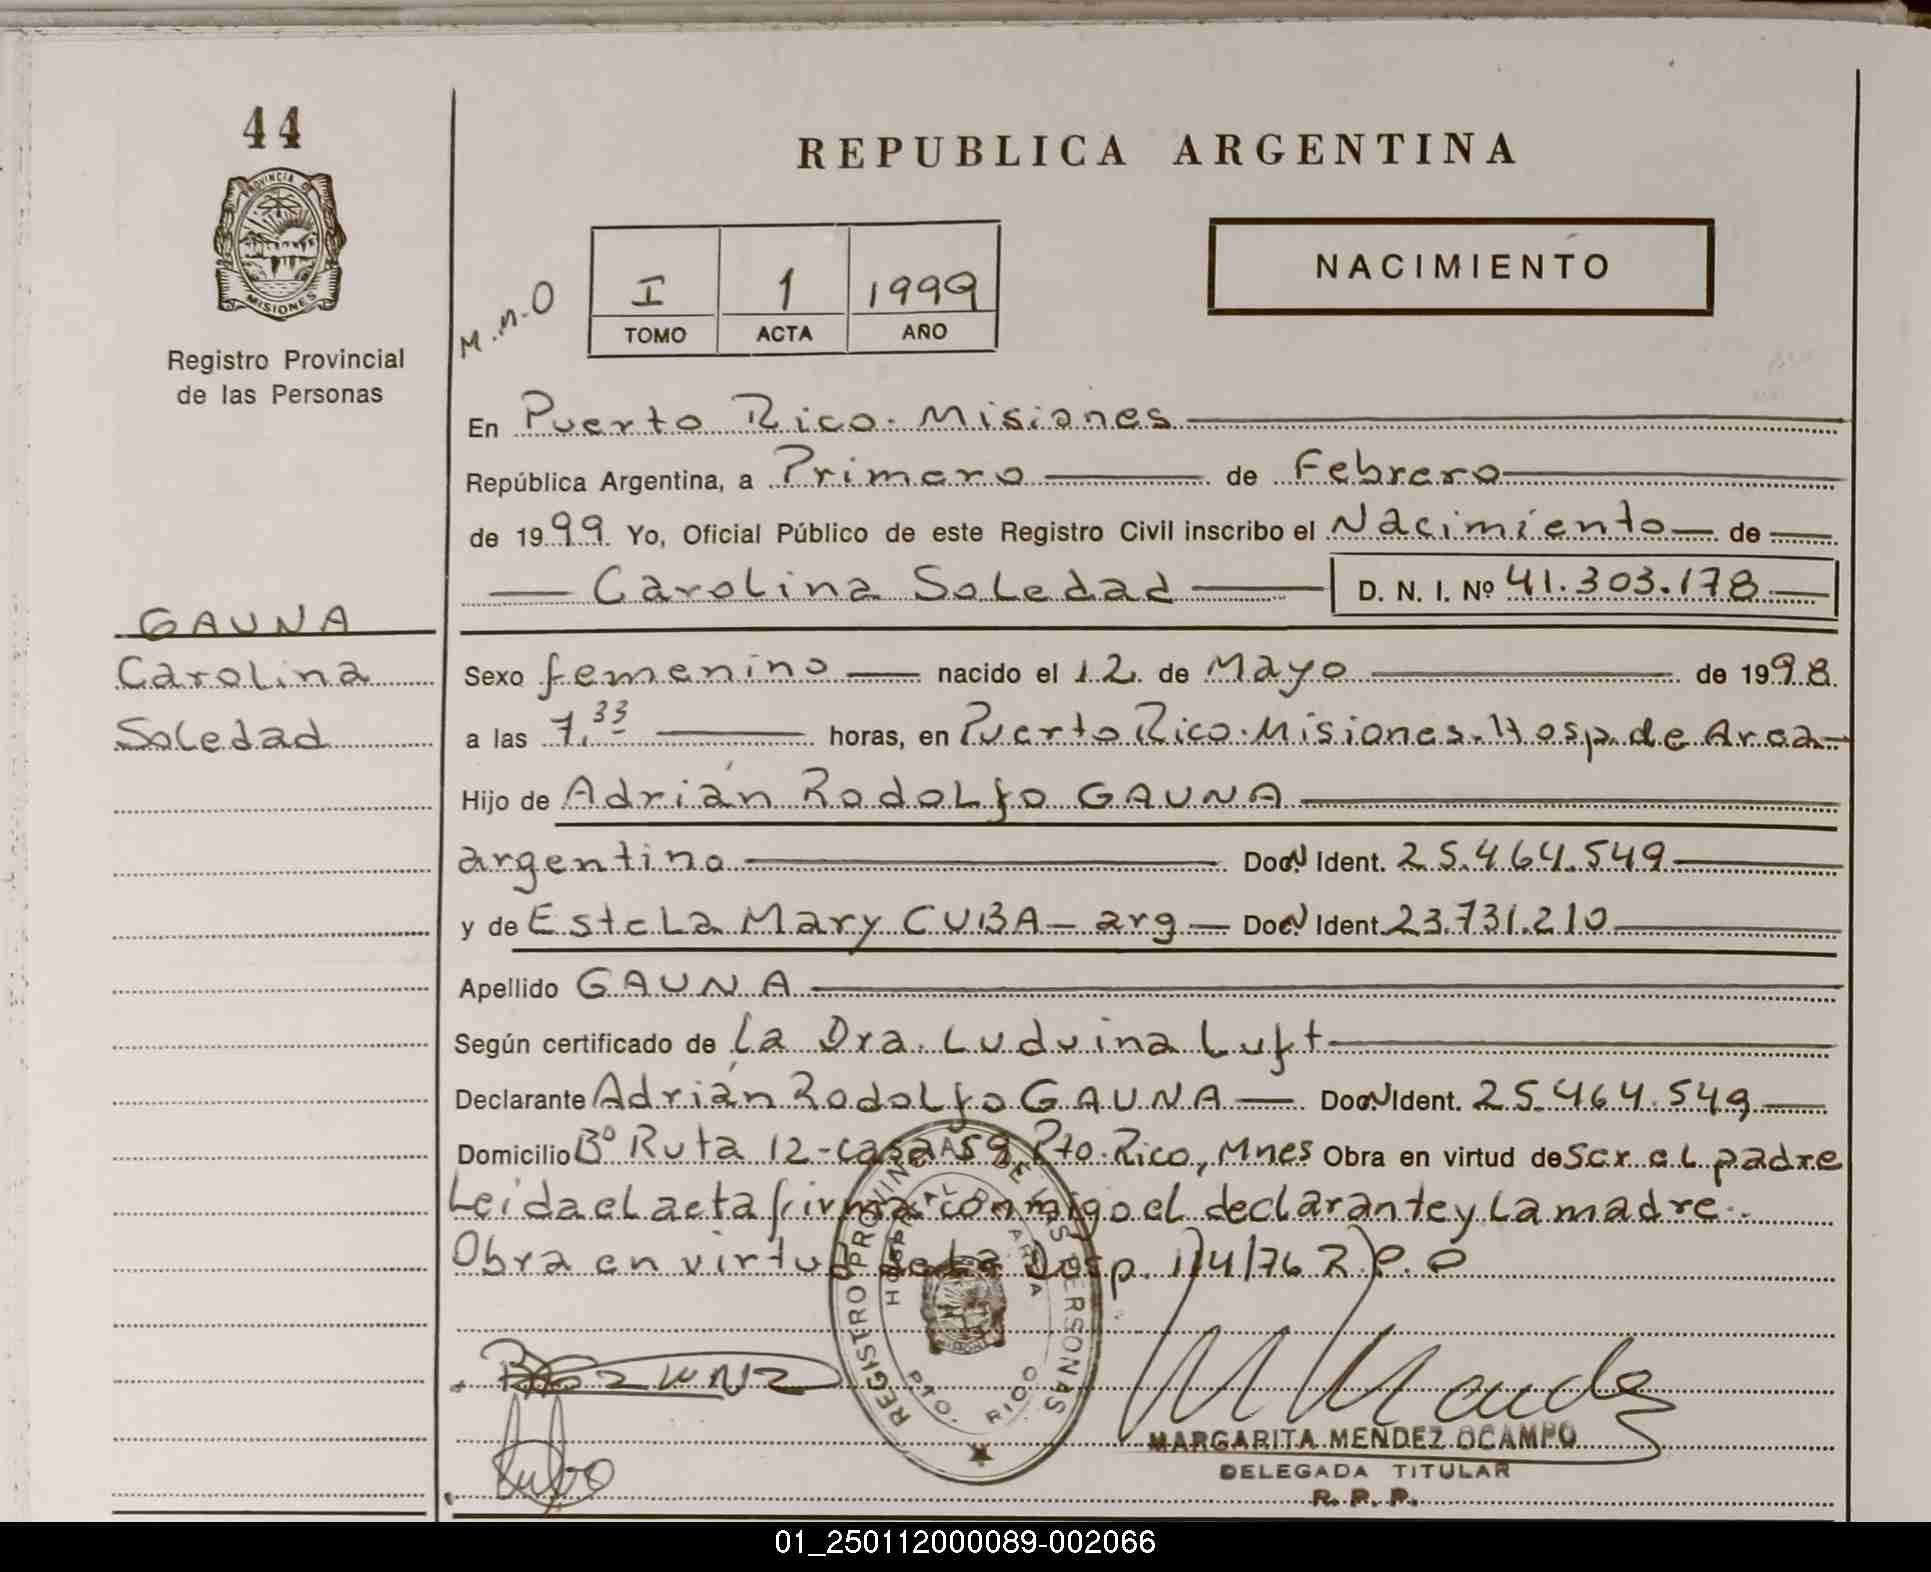 44
PROVINCIA D
MISIONES
Registro Provincial
de las Personas
REPUBLICA ARGENTINA
M.n.O
I 1 1999
TOMO ACTA AÑO
NACIMIENTO
En Puerto Rico. Misiones
República Argentina, a Primero de Febrero
de 1999 Yo, Oficial Público de este Registro Civil inscribo el Nacimiento de
Carolina Soledad D. N. I. Nº 41.303.178
GAUNA
Carolina
Soledad
Sexo femenino nacido el 12 de Mayo de 1998
a las 7.33 horas, en Puerto Rico. Misiones. Hosp. de Area
Hijo de Adrián Rodolfo GAUNA
argentino Doc. N Ident. 25.464.549
y de Estela Mary CUBA - arg Doc. N Ident. 23.731.210
Apellido GAUNA
Según certificado de La Dra. Luduina Luft
Declarante Adrián Rodolfo GAUNA Doc. N Ident. 25.464.549
Domicilio Bº Ruta 12 - casa 59 Pto. Rico, Mnes Obra en virtud de ser el padre
Leida el acta firma conmigo el declarante y La madre.
Obra en virtud de La Disp. 1)4/76 R.P.P
REGISTRO PROVINCIAL DE LAS PERSONAS
HOSPITAL DE AREA
PTO. RICO
MARGARITA MENDEZ OCAMPO
DELEGADA TITULAR
R. P. P.
01_250112000089-002066